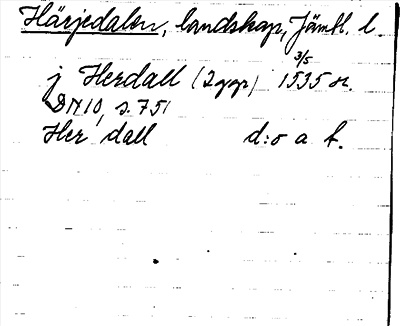 Härjedalen, landskap, Jämtl. l.
j Herdall (2 ggr) 3/5 1535 or.
DN 10, s. 751
Her dall d:o a t.